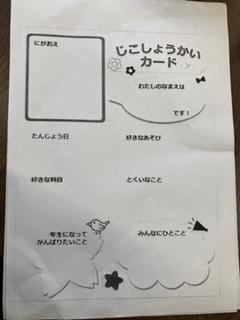 にがおえ
じこしょうかい
カード
わたしのなまえは
です！
たんじょう日
好きなあそび
好きな科目
とくいなこと
年生になって
がんばりたいこと
みんなにひとこと